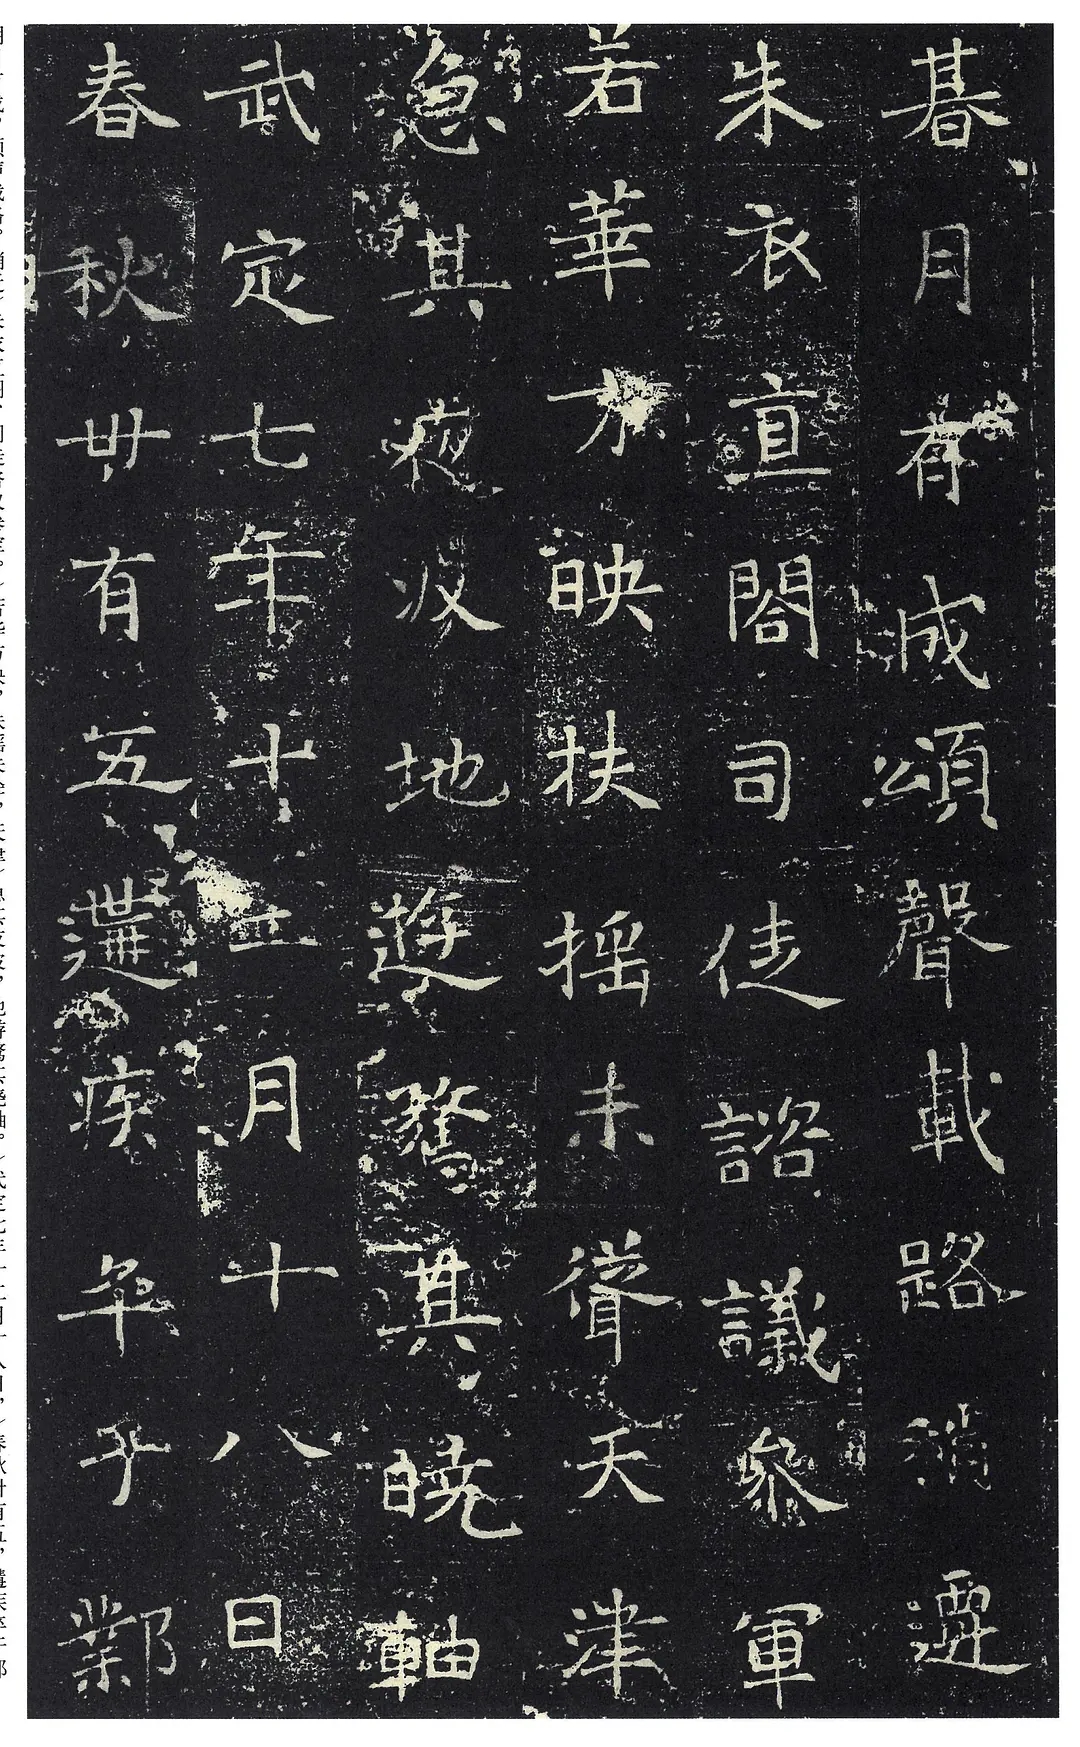 朞月有成頌聲載路稍遷
朱衣直閤司徒諮議參軍
若華方映扶摇未聳天津
忽其夜没地遊騖其曉軸
武定七年十二月十八日
春秋卌有五遘疾卒乎鄴